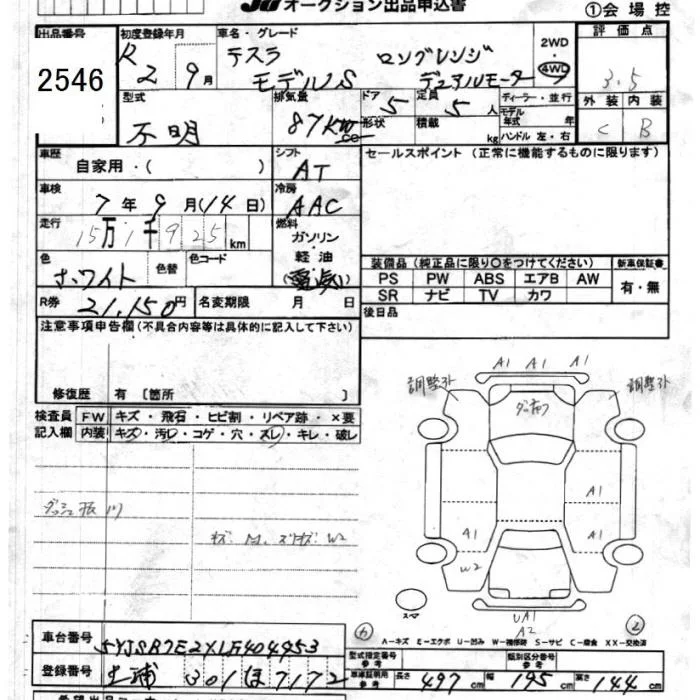 JU オークション出品申込書
①会場控
出品番号
2546
初度登録年月
R 2 9月
車名・グレード
テスラ ロングレンジ
モデルS デュアルモーター
2WD
4WD
評価点
3.5
外装 内装
C B
型式
不明
排気量
87KW
cc
ドア 5
形状
定員 5 人
積載 kg
ディーラー・並行
モデル年式 年
ハンドル 左・右
車歴
自家用・( )
シフト
AT
セールスポイント (正常に機能するものに限ります)
車検
7年9月(14日)
冷房
AAC
走行
15万1千925km
燃料
ガソリン・軽油
(電気)
色
ホワイト
色替
色コード
R券 21,150円
名変期限 月 日
装備品 (純正品に限り〇をつけてください)
新車保証書
PS PW ABS エアB AW
有・無
SR ナビ TV カワ
後日品
注意事項申告欄(不具合内容等は具体的に記入して下さい)
修復歴 有〔箇所 〕
検査員 FW キズ・飛石・ヒビ割・リペア跡・×要
記入欄 内装 キズ・汚レ・コゲ・穴・スレ・キレ・破レ
A1 A1 A1
調整外
調整外
A1
A1
A1
W2
UA1
A2
スマ
A-キズ E-エクボ U-凹み W-補修跡 S-サビ C-腐食 XX-交換済
車台番号 5YJSB7E2XLF404953
登録番号 土浦 301 ほ 7172
型式指定番号 参考
類別区分番号 参考
車庫証明用 参考
長さ 497cm 幅 195cm 高さ 144cm